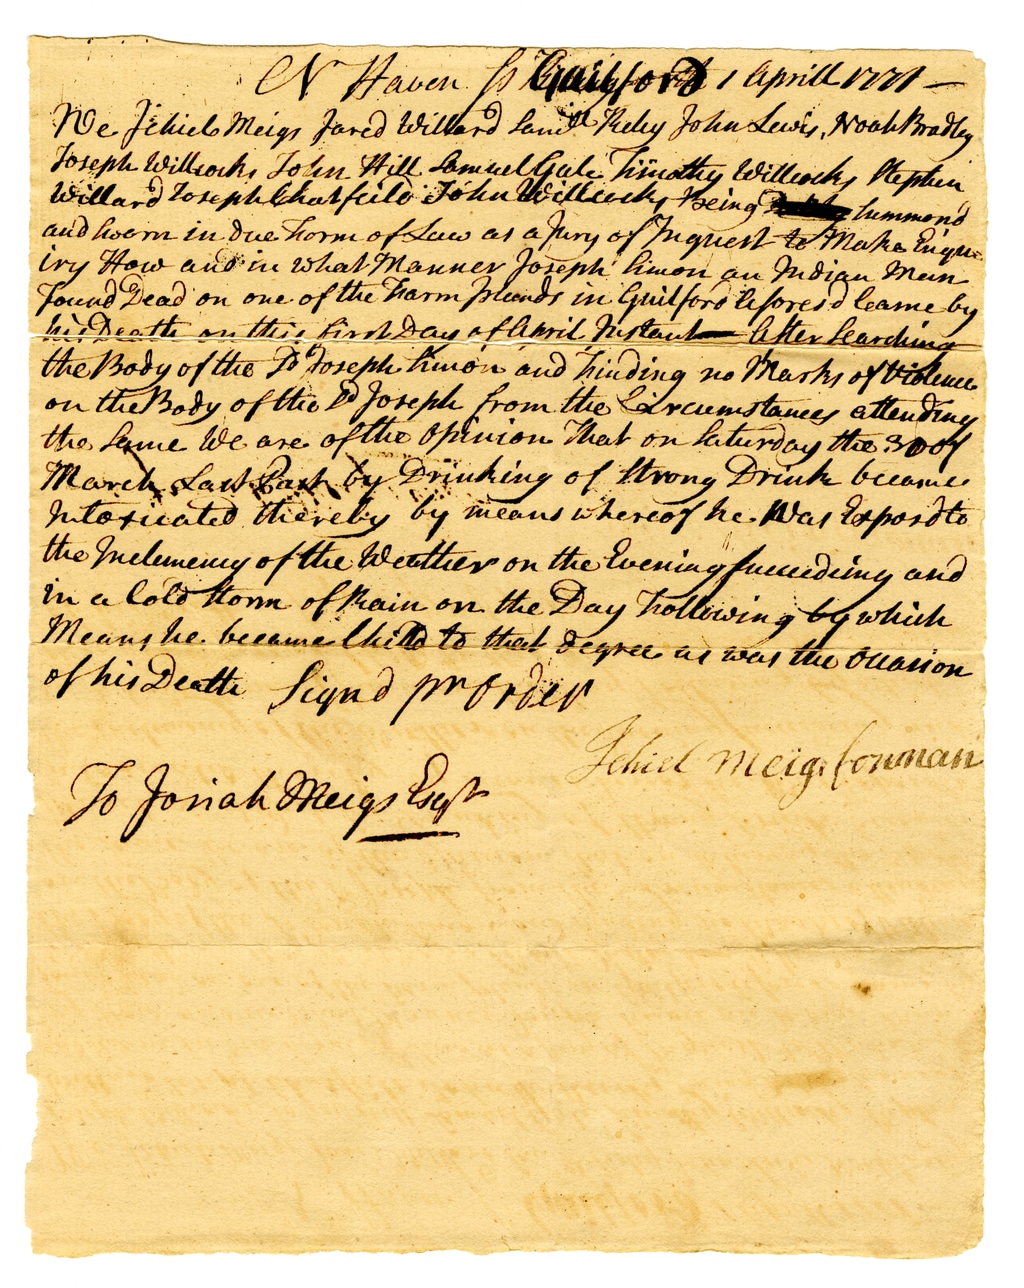 N Haven ss Guilford 1 Aprill 1771 —
We Jehiel Meigs Jared Willard Saml Kelcy John Lewis, Noah Bradley
Joseph Willcocks John Hill Samuel Gale Timothy Willcocks Stephen
Willard Joseph Chatfeild John Willcocks Being Summond
and Sworn in due Form of Law as a Jury of Inquest to Make Enqu-
iry How and in what Manner Joseph Simon an Indian Man
Found Dead on one of the Farm Islands in Guilford aforesd Came by
his Death on this First Day of April Instant — After Searching
the Body of the sd Joseph Simon and Finding no Marks of Violence
on the Body of the sd Joseph from the Circumstances attending
the Same We are of the Opinion That on Saturday the 30 of
March Last Past by Drinking of Strong Drink became
Intoxicated thereby by means whereof he Was Exposd to
the Inclemency of the Weather on the Evening Succeeding and
in a Cold Storm of Rain on the Day Following by which
Means he became Chilld to that degree as was the Occasion
of his Death Signd pr Order
Jehiel Meigs forman
To Josiah Meigs Esqr